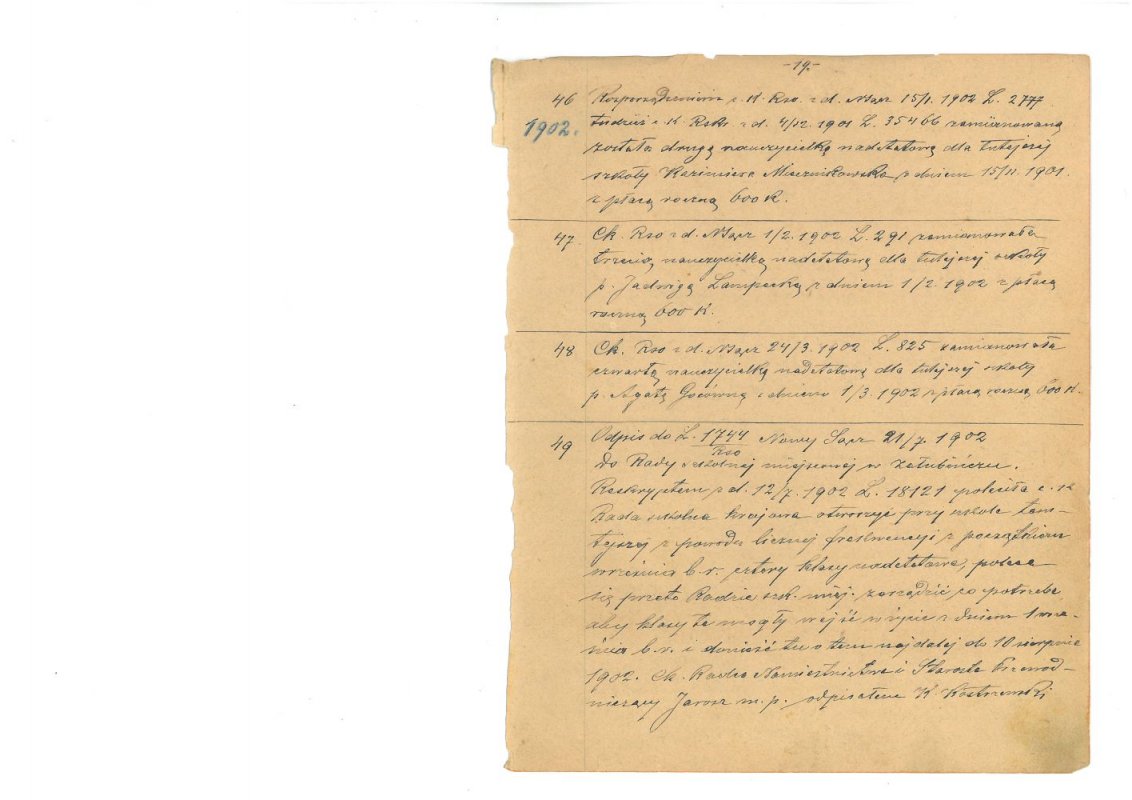 -19-
46 Rozporządzeniem c. K. Rso. z d. NSącz 15/1. 1902 L. 2777
1902. tudzież c. K Rskr. z d. 4/12. 1901 L. 35466 zamianowaną
została drugą nauczycielką nadetatową dla tutejszej
szkoły Kazimiera z dniem 15/11. 1901.
z płacą roczną 600 K.
47 Ck. Rso z d. NSącz 1/2. 1902 L. 291 zamianowała
trzecią nauczycielką nadetatową dla tutejszej szkoły
p. Jadwigę z dniem 1/2. 1902 z płacą
roczną 600 K.
48 Ck. Rso z d. NSącz 24/3. 1902 L. 825 zamianowała
czwartą nauczycielką nadetatową dla tutejszej szkoły
p. Agatę z dniem 1/3. 1902 z płacą roczną 600 K.
49 Odpis do L. 1744/Rso Nowy Sącz 21/7. 1902
Do Rady szkolnej miejscowej w Załubińczu.
Reskryptem z d. 12/7. 1902 L. 18121 poleciła c. K
Rada szkolna krajowa otworzyć przy szkole tam-
tejszej z powodu licznej frekwencyi z początkiem
września b. r. cztery klasy nadetatowe, poleca
się przeto Radzie szk. miej. zarządzić co potrzeba
aby klasy te mogły wejść w życie z dniem 1 wrze-
śnia b. r. i donieść tu o tem najdalej do 10 sierpnia
1902. Ck. Radca Namiestnictwa i Starosta Przewod-
niczący Jarosz m. p. odpisałem K